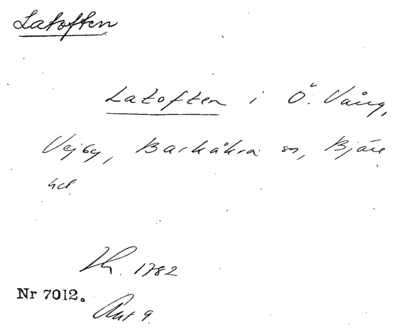 Latoften
Latoften i Ö. Vång,
Vejby, Barkåkra sn, Bjäre
hd.
1782
Nr 7012.
Akt 9.